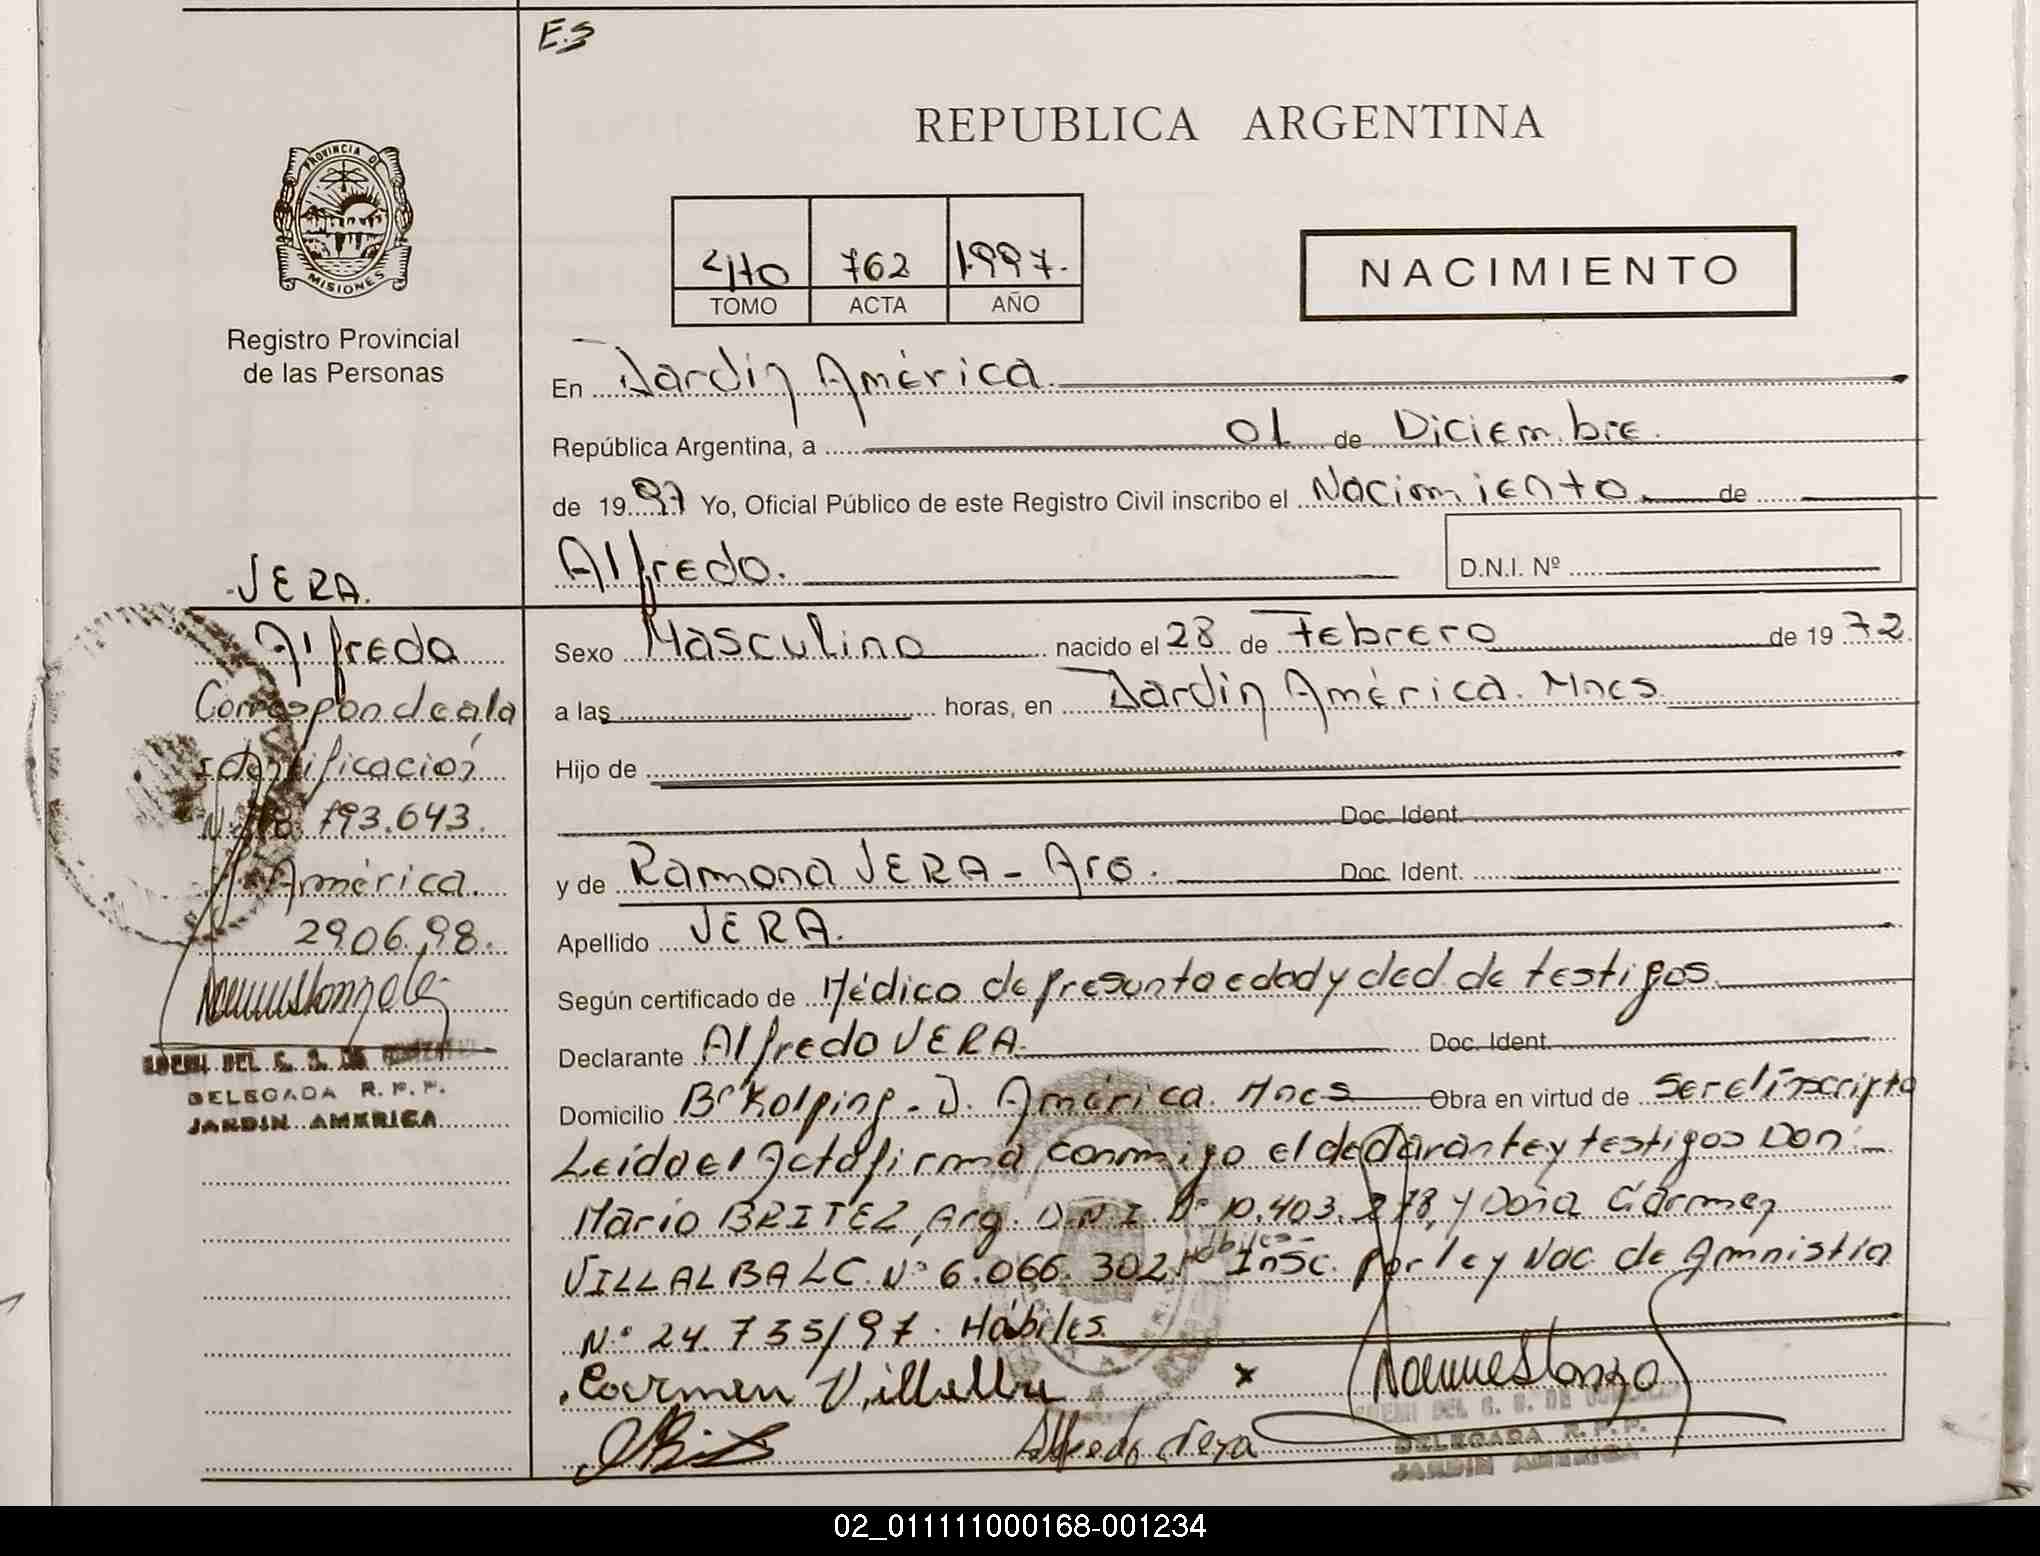 E.S
REPUBLICA ARGENTINA
PROVINCIA DE
MISIONES
Registro Provincial
de las Personas
4to 762 1.997.
TOMO ACTA AÑO
NACIMIENTO
En Jardín América.
República Argentina, a 01 de Diciembre.
de 1997 Yo, Oficial Público de este Registro Civil inscribo el Nacimiento de
Alfredo.
D.N.I. Nº
Sexo Masculino nacido el 28 de Febrero de 1972.
a las horas, en Jardín América. Mnes.
Hijo de
Doc. Ident.
y de Ramona VERA - Arg. Doc. Ident.
Apellido VERA.
Según certificado de Médico de presunta edad y decl. de testigos.
Declarante Alfredo VERA. Doc. Ident.
Domicilio Bº Kolping - J. América. Mnes Obra en virtud de ser el Inscripto
Leída el Acta firma conmigo el declarante y testigos Don:
Mario BRITEZ, Arg. D.N.I. Nº 10.403.278, y Doña Carmen
VILLALBA L.C. Nº 6.066.302 Hábiles- Insc. por ley Nac. de Amnistía
N.º 24.755/97. Hábiles.
Carmen Villalba x
Alfredo Vera
DELEGADA R.P.P.
JARDIN AMERICA
-VERA.
Alfredo
Corresponde a la
identificación
Nº 793.643.
J. América.
29.06.98.
DELEGADA R.P.P.
JARDIN AMERICA
02_011111000168-001234